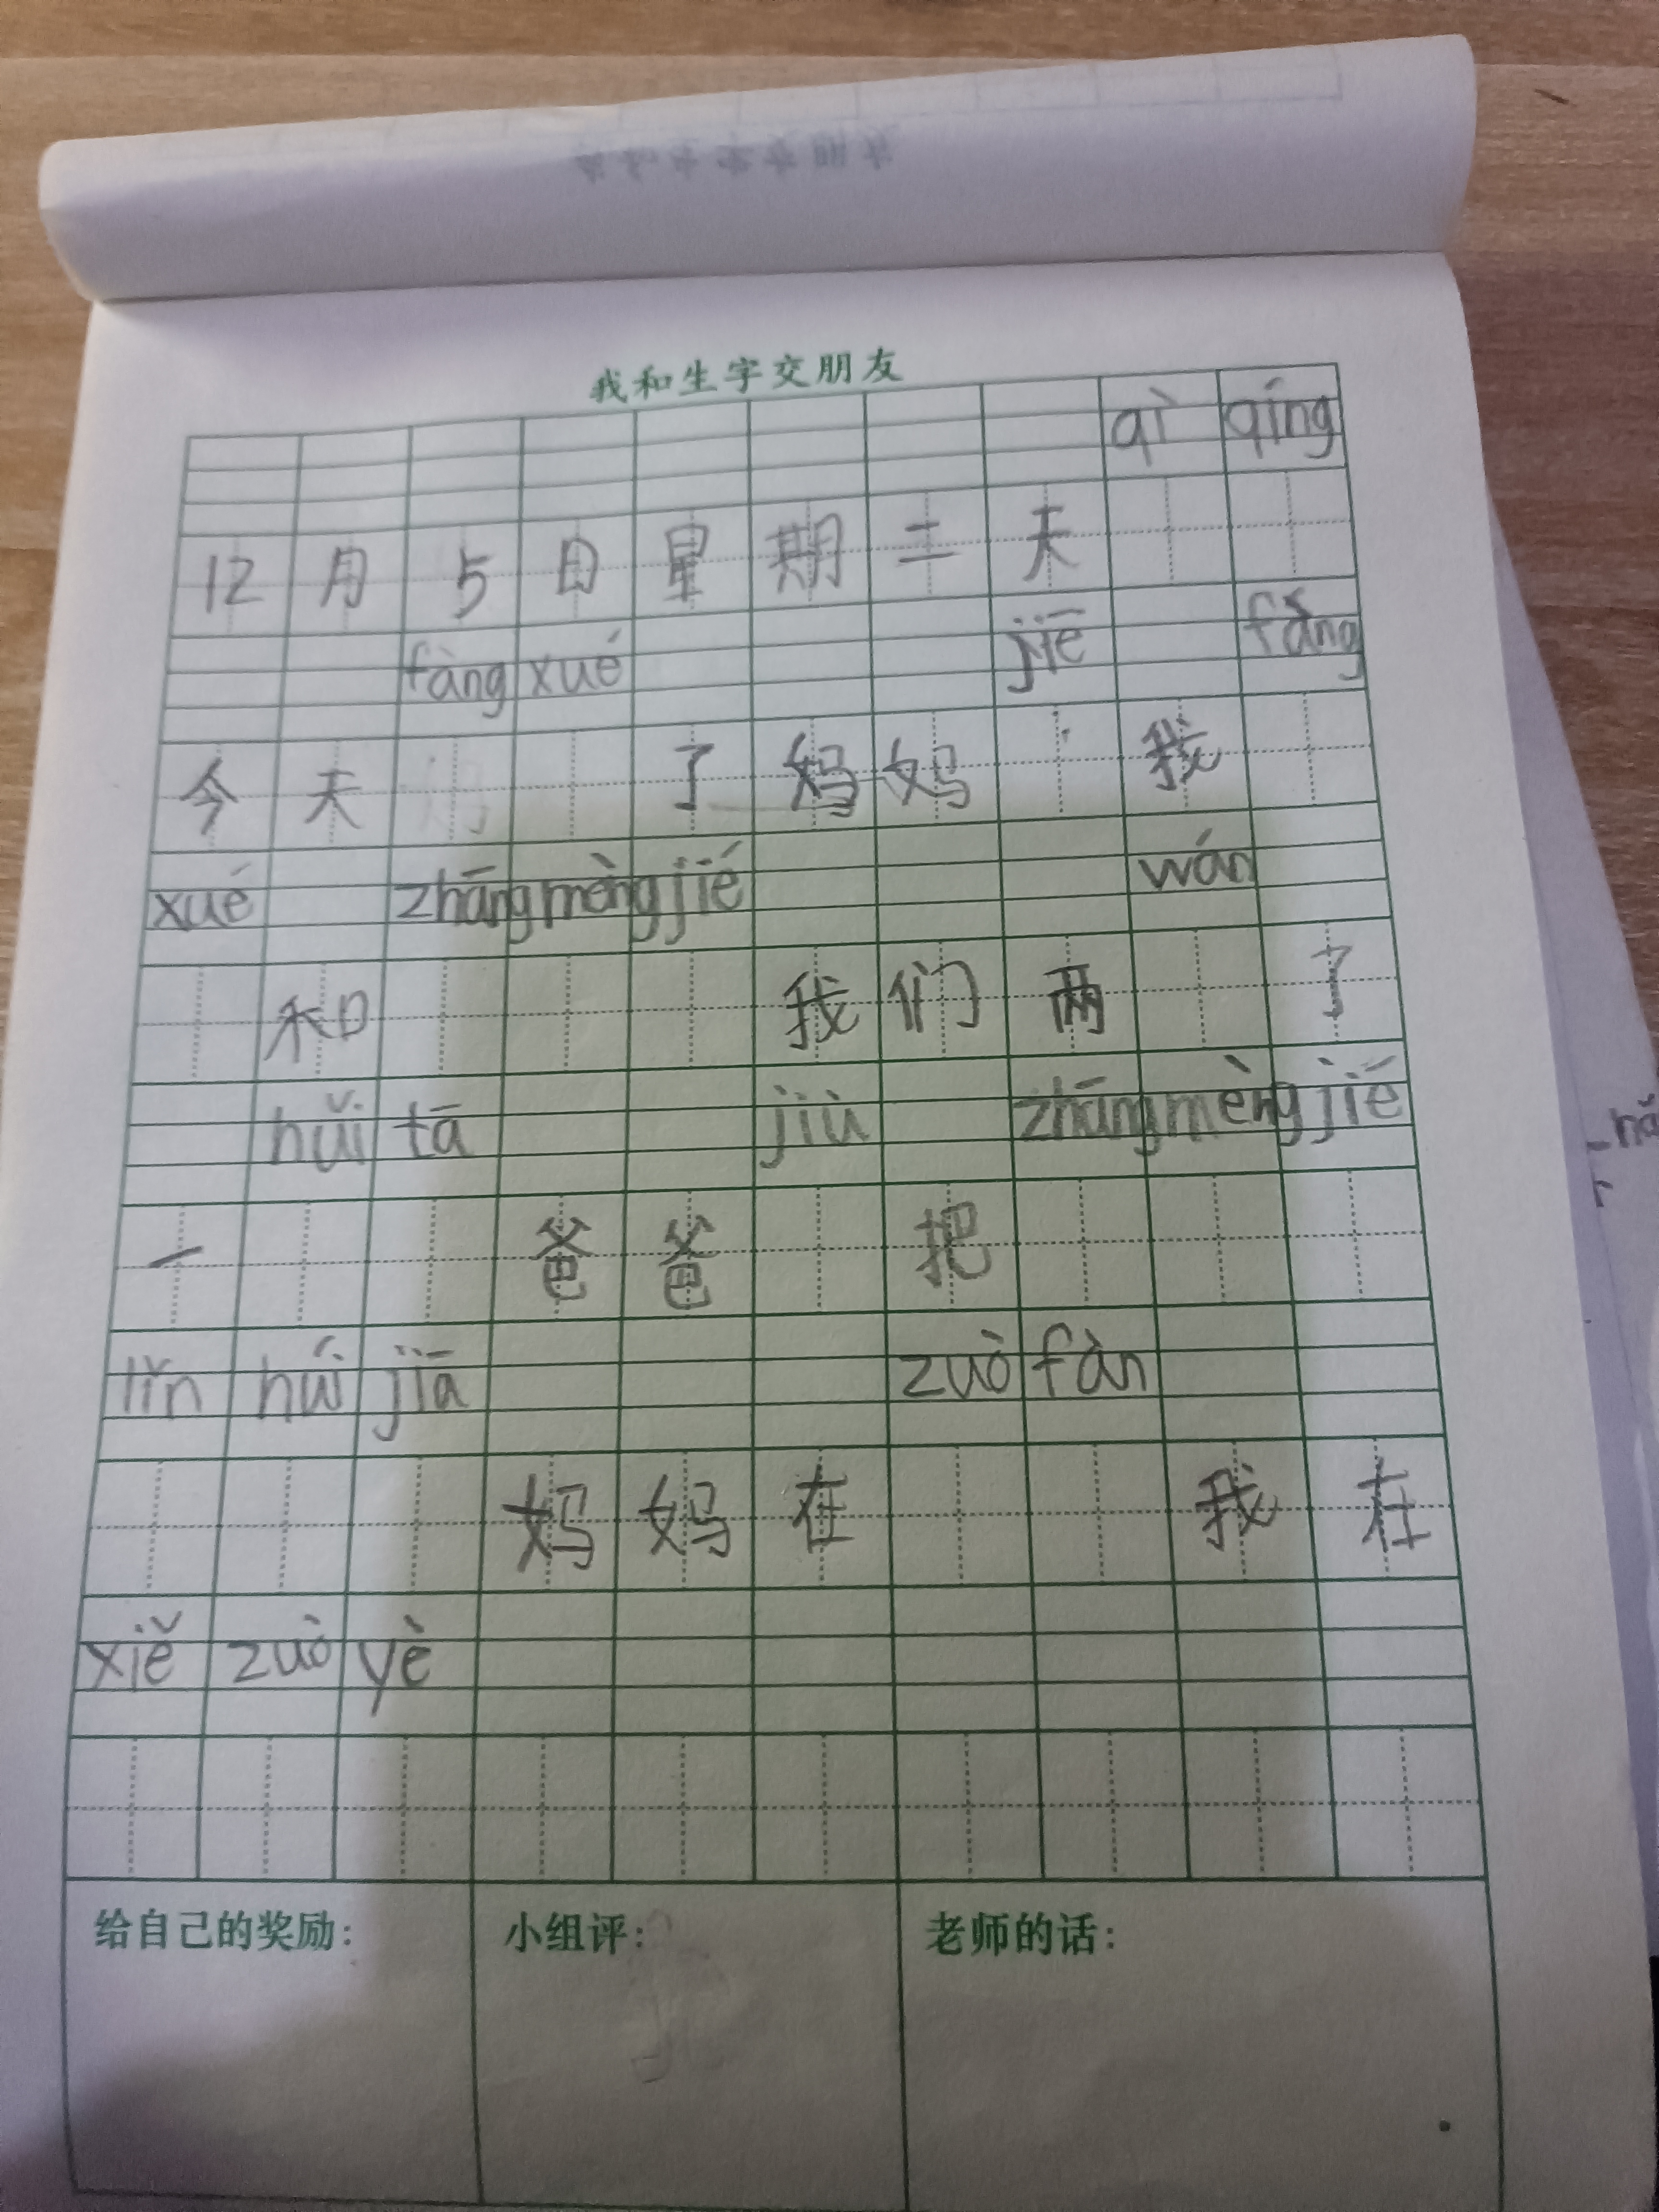 我和生字交朋友
qì qíng
12月5日星期二天
fàng xué jiē fàng
今天了妈妈我
xué zhāng mèng jié wán
和我们两了
huǐ tā jiù zhāng mèng jié
一爸爸把
lǐn huí jiā zuò fàn
妈妈在我在
xiě zuò yè
给自己的奖励:
小组评:
老师的话: